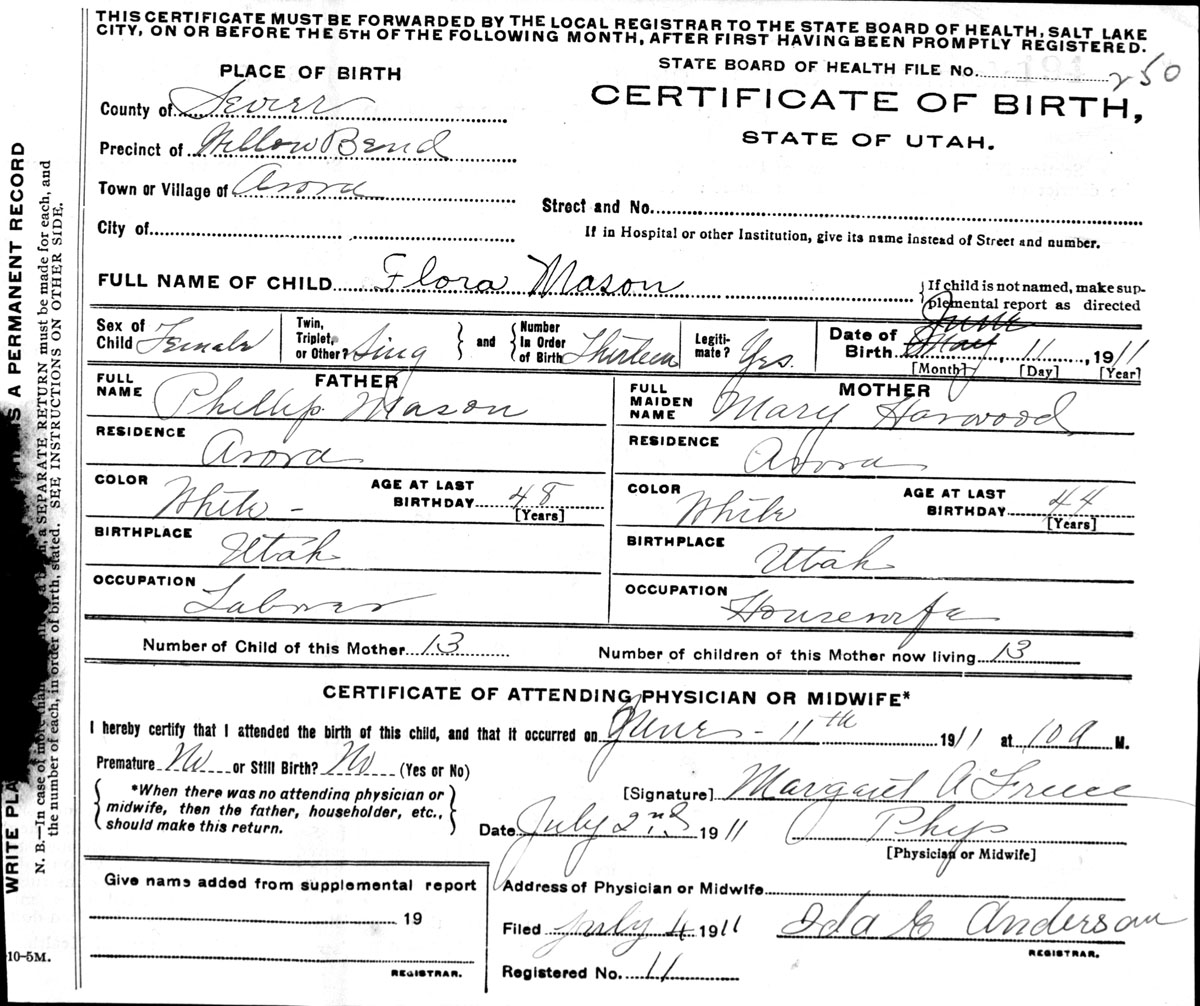 THIS CERTIFICATE MUST BE FORWARDED BY THE LOCAL REGISTRAR TO THE STATE BOARD OF HEALTH, SALT LAKE
CITY, ON OR BEFORE THE 5TH OF THE FOLLOWING MONTH, AFTER FIRST HAVING BEEN PROMPTLY REGISTERED.
STATE BOARD OF HEALTH FILE No. 250
CERTIFICATE OF BIRTH,
STATE OF UTAH.
PLACE OF BIRTH
County of Sevier
Precinct of Willow Bend
Town or Village of Arora
City of
Street and No.
If in Hospital or other Institution, give its name instead of Street and number.
FULL NAME OF CHILD Flora Mason
If child is not named, make sup-
plemental report as directed
Sex of Child Female
Twin, Triplet, or Other? Sing
and
Number In Order of Birth Thirteen
Legiti- mate? Yes.
Date of Birth June May, 11, 1911
[Month] [Day] [Year]
FATHER
FULL NAME Phillip Mason
RESIDENCE Arora
COLOR White - AGE AT LAST BIRTHDAY 48 [Years]
BIRTHPLACE Utah
OCCUPATION Laborer
MOTHER
FULL MAIDEN NAME Mary Harwood
RESIDENCE Arora
COLOR White AGE AT LAST BIRTHDAY 44 [Years]
BIRTHPLACE Utah
OCCUPATION Housewife
Number of Child of this Mother 13 Number of children of this Mother now living 13
CERTIFICATE OF ATTENDING PHYSICIAN OR MIDWIFE*
I hereby certify that I attended the birth of this child, and that it occurred on June - 11th 1911 at 10 a M.
Premature No or Still Birth? No (Yes or No)
*When there was no attending physician or
midwife, then the father, householder, etc.,
should make this return.
[Signature] Margaret A Freece
Date July 2nd 1911 Phys
[Physician or Midwife]
Give name added from supplemental report
19
REGISTRAR.
Address of Physician or Midwife
Filed July 4 1911 Ida E Anderson
REGISTRAR.
Registered No. 11
WRITE PLA S A PERMANENT RECORD
N. B.—In case of more than a SEPARATE RETURN must be made for each, and
the number of each, in order of birth, stated. SEE INSTRUCTIONS ON OTHER SIDE.
10-5M.